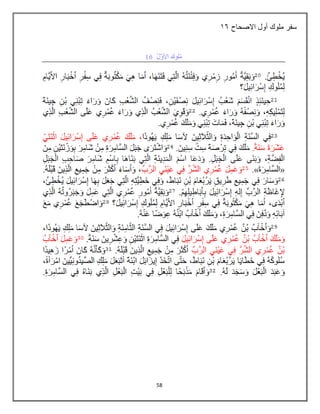 سفر ملوك أول الاصحاح ١٦
مُلُوكَ الأَوَّلُ 16
يُخْطِئُ. ٢٠وَبَقِيَّةُ أُمُورِ زِمْرِي وَفِتْنَتُهُ الَّتِي فَتَنَهَا، أَمَا هِيَ مَكْتُوبَةٌ فِي سِفْرِ أَخْبَارِ الأَيَّامِ
لِمُلُوكِ إِسْرَائِيلَ؟
٢١حِينَئِذٍ انْقَسَمَ شَعْبُ إِسْرَائِيلَ نِصْفَيْنِ، فَنِصْفُ الشَّعْبِ كَانَ وَرَاءَ تِبْنِي بْنِ جِينَةَ
لِتَمْلِيكِهِ، وَنِصْفُهُ وَرَاءَ عُمْرِي. ٢٢وَقَوِيَ الشَّعْبُ الَّذِي وَرَاءَ عُمْرِي عَلَى الشَّعْبِ الَّذِي
وَرَاءَ تِبْنِي بْنِ جِينَةَ، فَمَاتَ تِبْنِي وَمَلَكَ عُمْرِي.
٢٣فِي السَّنَةِ الْوَاحِدَةِ وَالثَّلاَثِينَ لآسَا مَلِكِ يَهُوذَا، مَلَكَ عُمْرِي عَلَى إِسْرَائِيلَ اثْنَتَيْ
عَشَرَةَ سَنَةً. مَلَكَ فِي تِرْصَةَ سِتَّ سِنِينَ. ٢٤وَاشْتَرَى جَبَلَ السَّامِرَةِ مِنْ شَامِرَ بِوَزْنَتَيْنِ مِنَ
الْفِضَّةِ، وَبَنَى عَلَى الْجَبَلِ. وَدَعَا اسْمَ الْمَدِينَةِ الَّتِي بَنَاهَا بِاسْمِ شَامِرَ صَاحِبِ الْجَبَلِ
«السَّامِرَةَ». ٢٥وَعَمِلَ عُمْرِي الشَّرَّ فِي عَيْنَيِ الرَّبِّ، وَأَسَاءَ أَكْثَرَ مِنْ جَمِيعِ الَّذِينَ قَبْلَهُ.
٢٦وَسَارَ فِي جَمِيعِ طَرِيقِ يَرُبْعَامَ بْنِ نَبَاطَ، وَفِي خَطِيَّتِهِ الَّتِي جَعَلَ بِهَا إِسْرَائِيلَ يُخْطِئُ،
لإِغَاظَةِ الرَّبِّ إِلهِ إِسْرَائِيلَ بِأَبَاطِيلِهِمْ. ٢٧وَبَقِيَّةُ أُمُورِ عُمْرِي الَّتِي عَمِلَ وَجَبَرُوتُهُ الَّذِي
أَبْدَى، أَمَا هِيَ مَكْتُوبَةٌ فِي سِفْرِ أَخْبَارِ الأَيَّامِ لِمُلُوكِ إِسْرَائِيلَ؟ ٢٨وَاضْطَجَعَ عُمْرِي مَعَ
آبَائِهِ وَدُفِنَ فِي السَّامِرَةِ، وَمَلَكَ أَخْآبُ ابْنُهُ عِوَضًا عَنْهُ.
٢٩وَأَخْآبُ بْنُ عُمْرِي مَلَكَ عَلَى إِسْرَائِيلَ فِي السَّنَةِ الثَّامِنَةِ وَالثَّلاَثِينَ لآسَا مَلِكِ يَهُوذَا،
وَمَلَكَ أَخْآبُ بْنُ عُمْرِي عَلَى إِسْرَائِيلَ فِي السَّامِرَةِ اثْنَتَيْنِ وَعِشْرِينَ سَنَةً. ٣٠وَعَمِلَ أَخْآبُ
بْنُ عُمْرِي الشَّرَّ فِي عَيْنَيِ الرَّبِّ أَكْثَرَ مِنْ جَمِيعِ الَّذِينَ قَبْلَهُ. ٣١وَكَأَنَّهُ كَانَ أَمْرًا زَهِيدًا
سُلُوكُهُ فِي خَطَايَا يَرُبْعَامَ بْنِ نَبَاطَ، حَتَّى اتَّخَذَ إِيزَابَلَ ابْنَةَ أَثْبَعَلَ مَلِكِ الصِّيدُونِيِّينَ امْرَأَةً،
وَعَبَدَ الْبَعْلَ وَسَجَدَ لَهُ. ٣٢وَأَقَامَ مَذْبَحًا لِلْبَعْلِ فِي بَيْتِ الْبَعْلِ الَّذِي بَنَاهُ فِي السَّامِرَةِ.
58